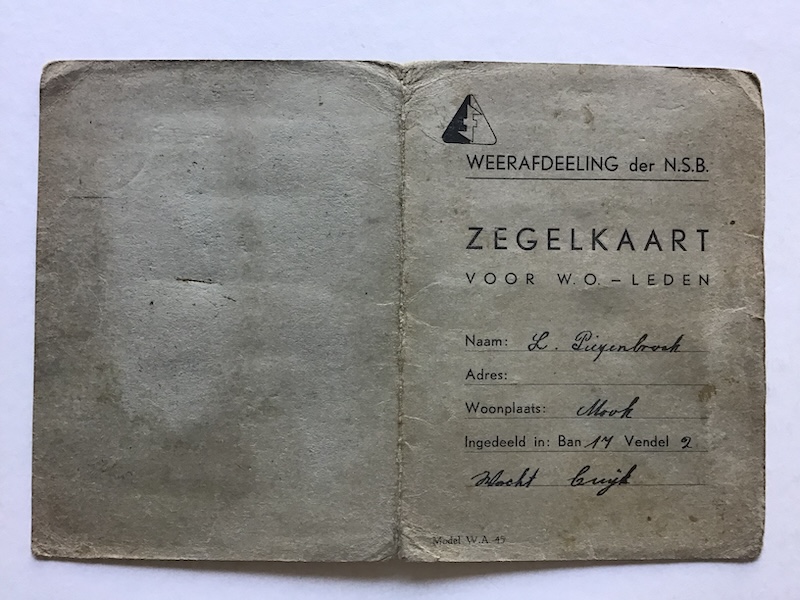 WEERAFDEELING der N.S.B.
ZEGELKAART
VOOR W.O. – LEDEN
Naam: L. Piezenbroek
Adres:
Woonplaats: Mook
Ingedeeld in: Ban 17 Vendel 2
Wacht Cuijk
Model W.A. 45